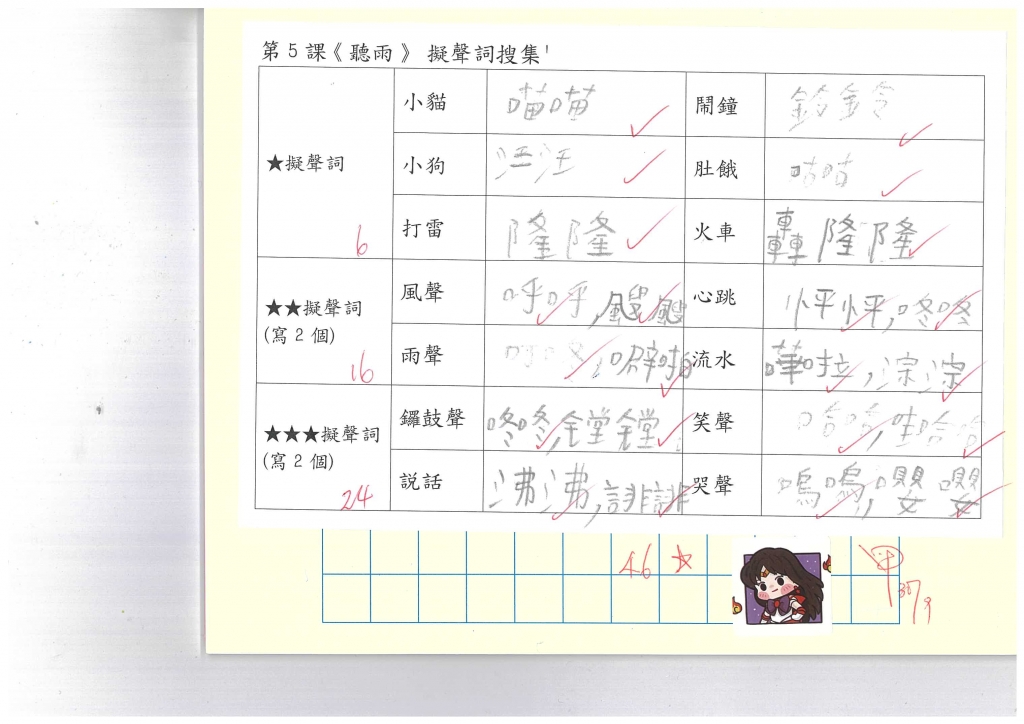 第5課《聽雨》 擬聲詞搜集¹
★擬聲詞 6
小貓 喵喵 鬧鐘 鈴鈴
小狗 汪汪 肚餓 咕咕
打雷 隆隆 火車 轟隆隆
★★擬聲詞
(寫2個) 16
風聲 呼呼,颼颼 心跳 怦怦,咚咚
雨聲 噼啪 流水 嘩啦,淙淙
★★★擬聲詞
(寫2個) 24
鑼鼓聲 咚咚,鏜鏜 笑聲 哈哈,哇哈哈
說話 沸沸,誹誹 哭聲 嗚嗚,嚶嚶
46 ☆ 甲 30/9